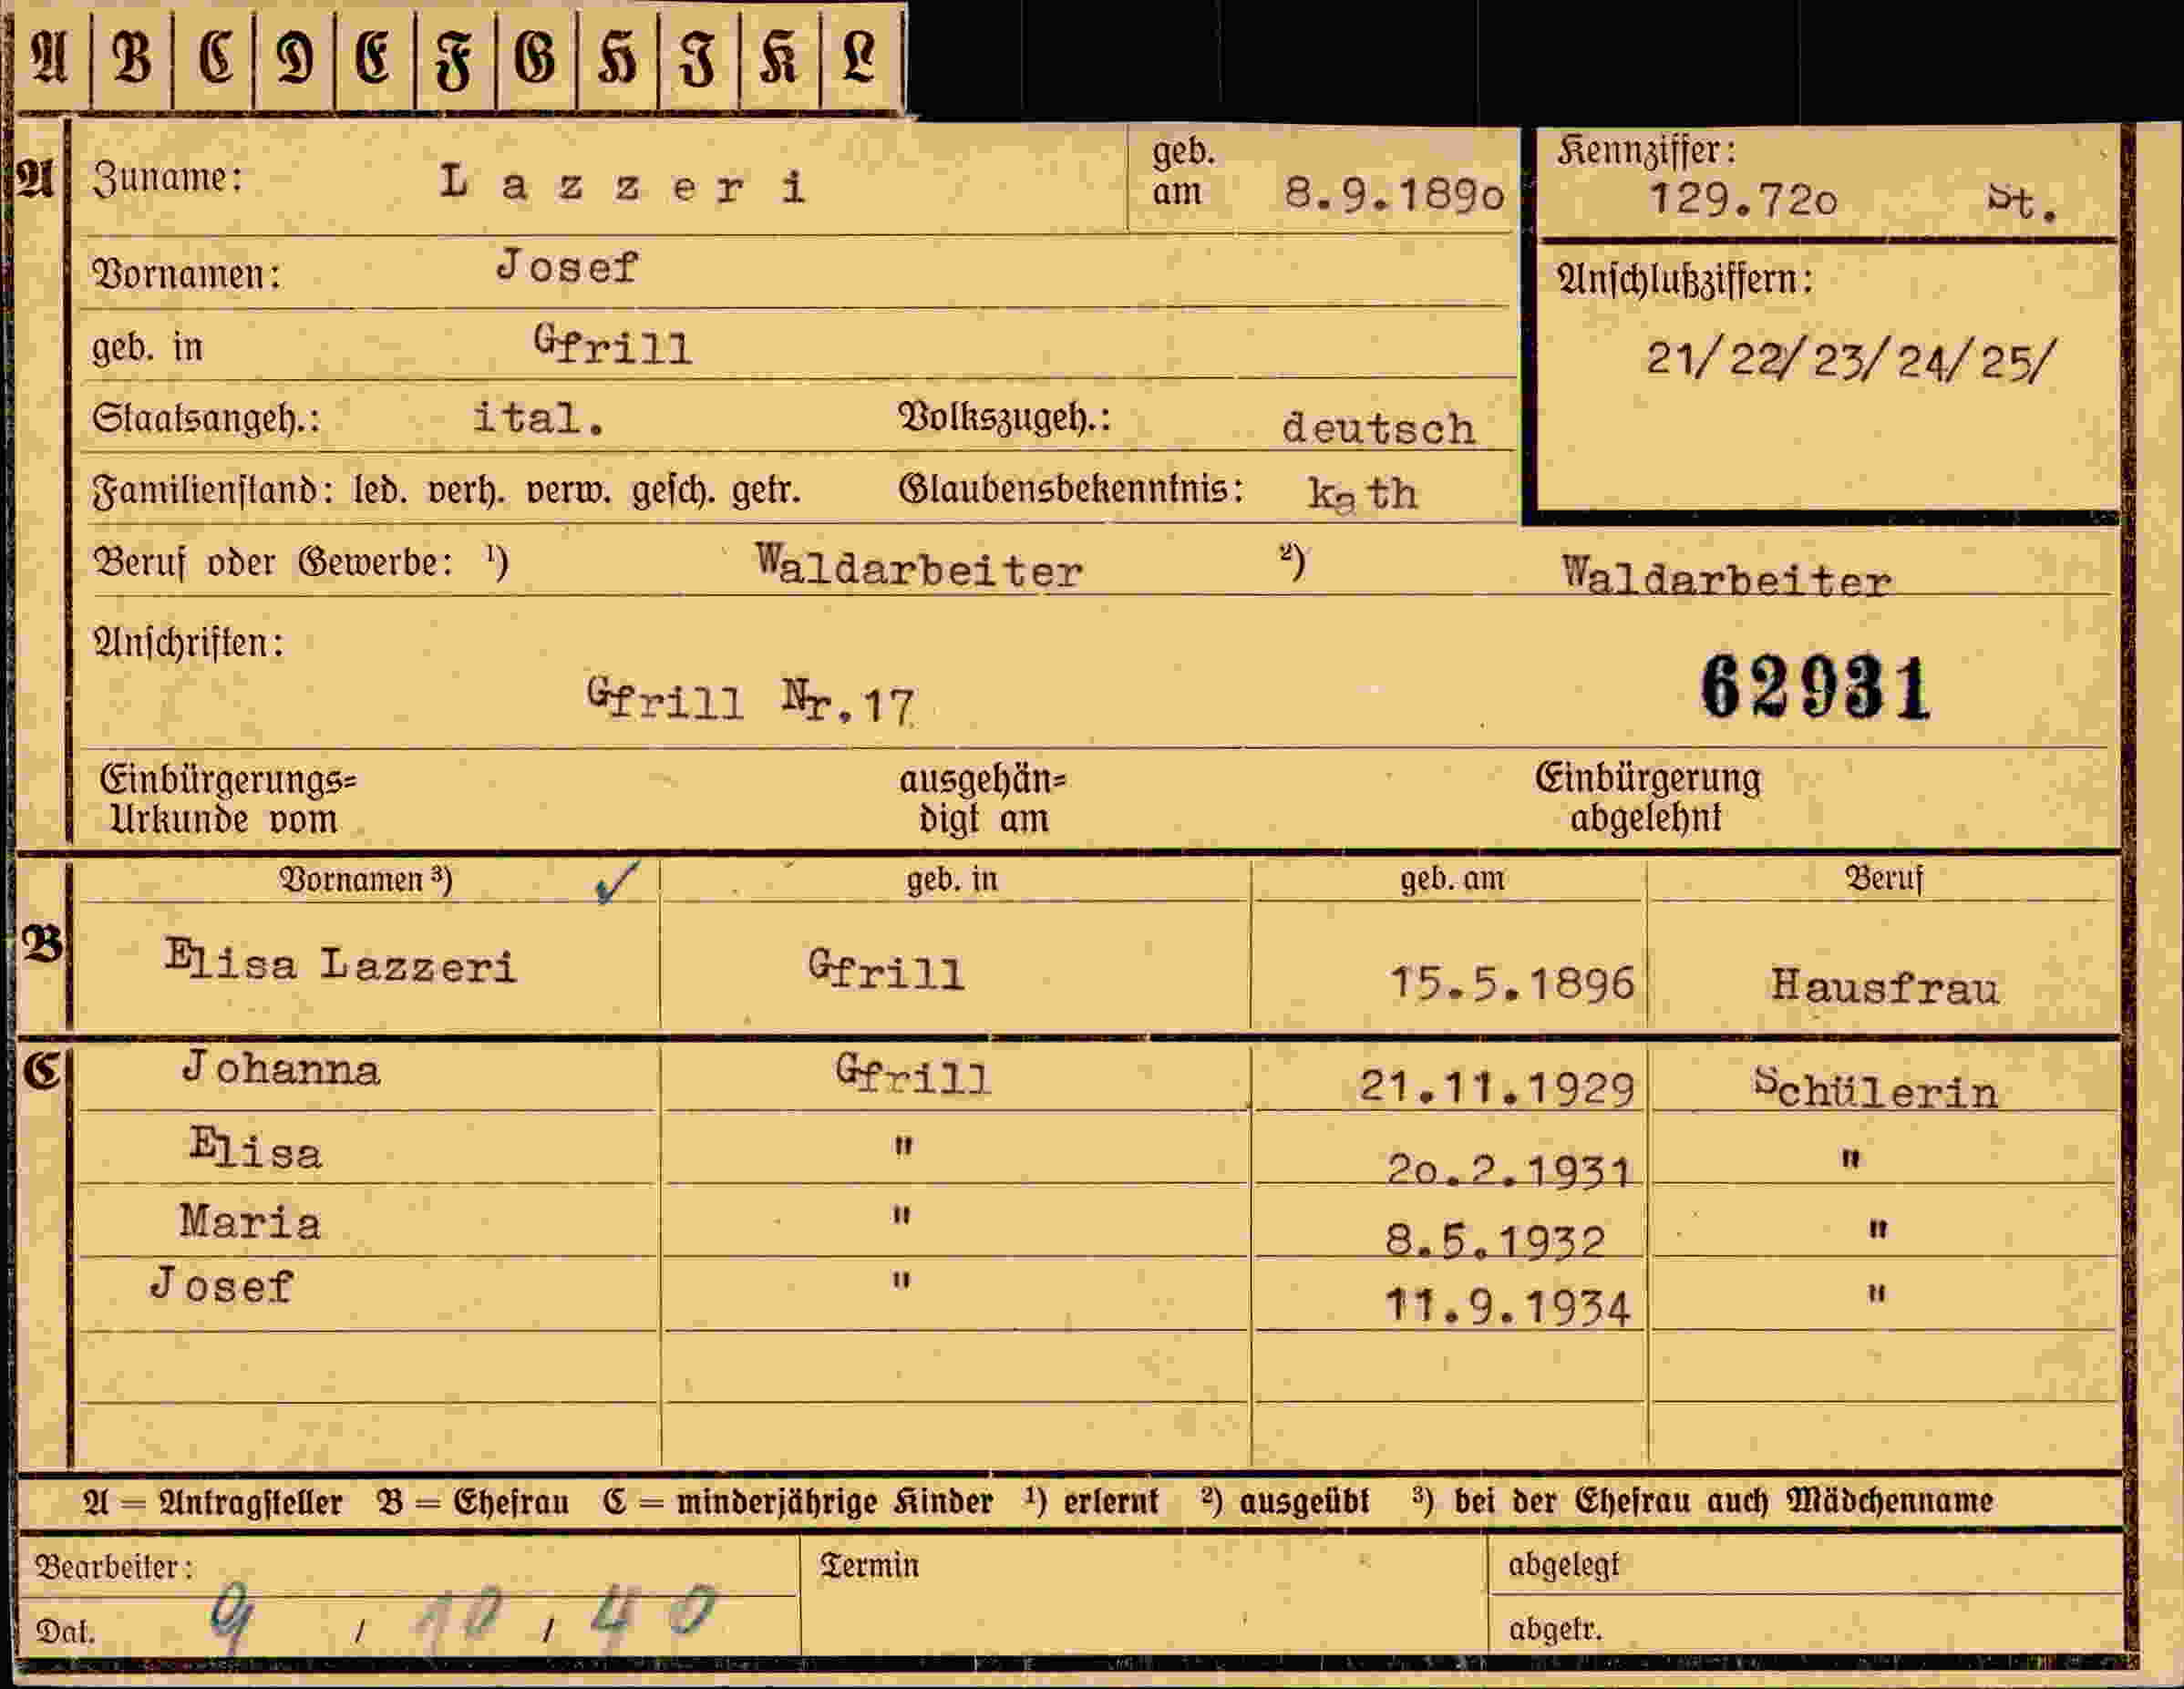 A B C D E F G H I K L
A Zuname: Lazzeri geb. am 8.9.189o Kennziffer: 129.72o St.
Vornamen: Josef
Anschlußziffern:
geb. in Gfrill 21/22/23/24/25/
Staatsangeh.: ital. Volkszugeh.: deutsch
Familienstand: led. verh. verw. gesch. getr. Glaubensbekenntnis: kath
Beruf oder Gewerbe: ¹) Waldarbeiter ²) Waldarbeiter
Anschriften:
Gfrill Nr.17 62931
Einbürgerungs= ausgehän= Einbürgerung
Urkunde vom digt am abgelehnt
Vornamen ³) ✓ geb. in geb. am Beruf
B Elisa Lazzeri Gfrill 15.5.1896 Hausfrau
C Johanna Gfrill 21.11.1929 Schülerin
Elisa " 2o.2.1931 "
Maria " 8.5.1932 "
Josef " 11.9.1934 "
A = Antragsteller B = Ehefrau C = minderjährige Kinder ¹) erlernt ²) ausgeübt ³) bei der Ehefrau auch Mädchenname
Bearbeiter: Termin abgelegt
Dat. 9 / 10 / 40 abgetr.